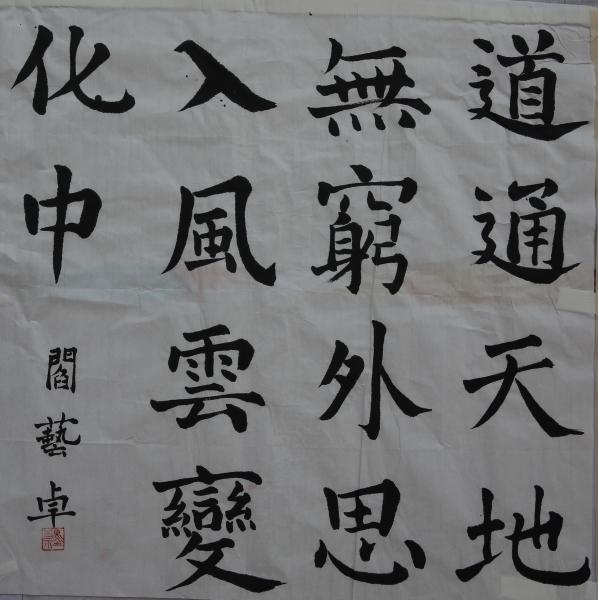 道通天地
無窮外思
入風雲變
化中
閻藝卓